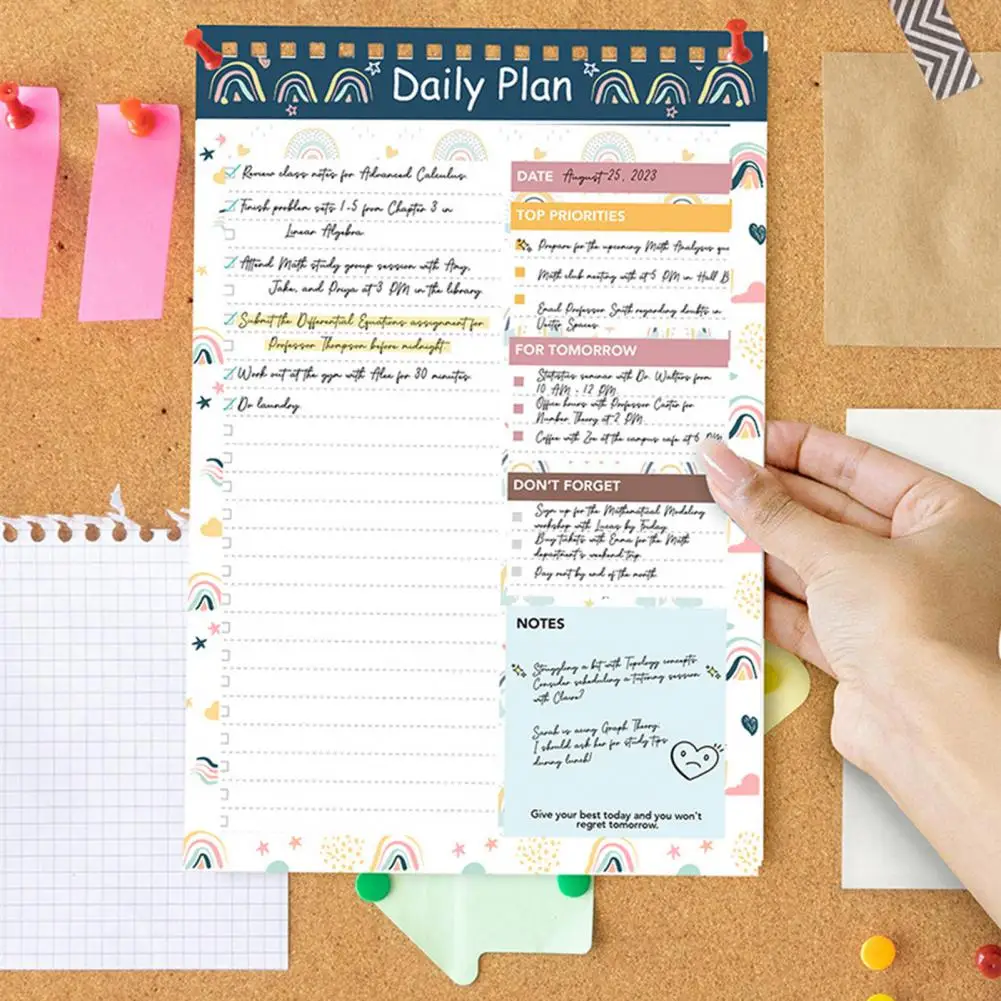 Daily Plan
Review class notes for Advanced Calculus.
Finish problem sets 1-5 from Chapter 3 in
Linear Algebra
Attend Math study group session with Amy,
Jake, and Priya at 3 PM in the library.
Submit the Differential Equations assignment for
Professor Thompson before midnight
Work out at the gym with Alex for 30 minutes.
Do laundry
DATE August 25, 2023
TOP PRIORITIES
Prepare for the upcoming Math Analysis qu
Math club meeting with at 5 PM in Hall B
Email Professor Smith regarding doubts in
Vector Spaces
FOR TOMORROW
Statistics seminar with Dr. Walters from
10 AM - 12 PM
Office hours with Professor Carter for
Number Theory at 2 PM
Coffee with Zoe at the campus cafe at PM
DON'T FORGET
Sign up for the Mathematical Modeling
workshop with Lucas by Friday
Buy tickets with Emma for the Math
department's weekend trip
Pay rent by end of the month
NOTES
Struggling a bit with Topology concepts
Consider scheduling a tutoring session
with Claire?
Sarah is acing Graph Theory;
I should ask her for study tips
during lunch!
Give your best today and you won't
regret tomorrow.